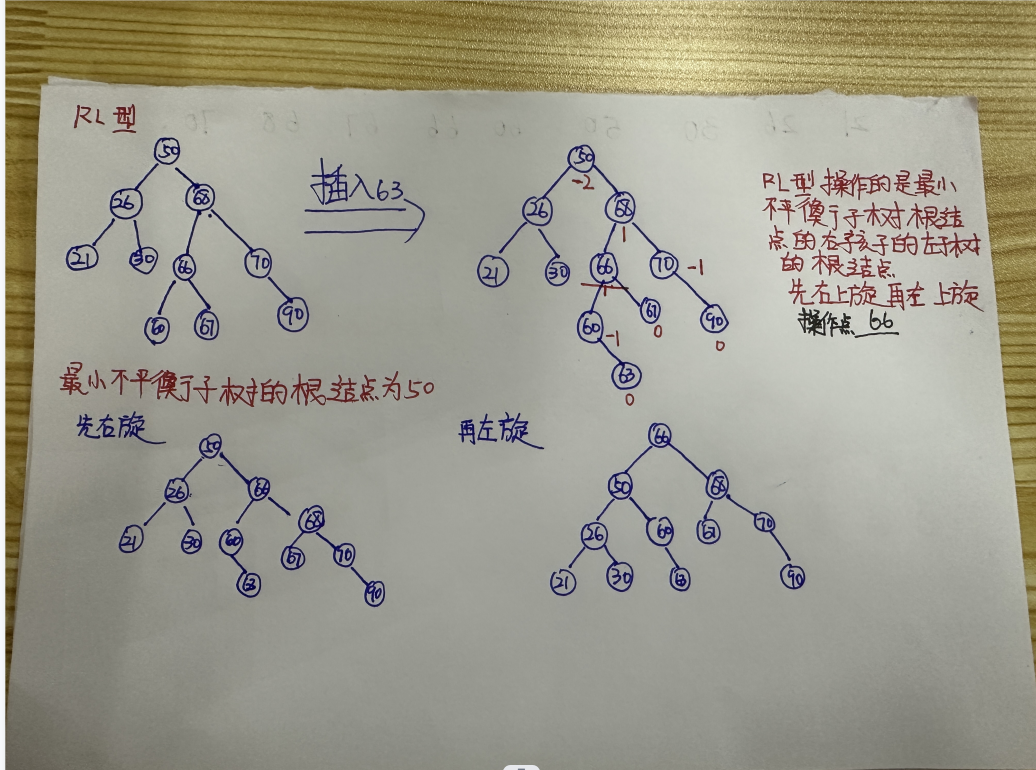 RL型
50
26 68
21 30 66 70
60 67 90
插入63
50
-2
26 68
1
21 30 66 70 -1
1
60 -1 67 90
0 0
63
0
RL型操作的是最小
不平衡子树根结
点的右孩子的左子树
的根结点
先右上旋再左上旋
操作点 66
最小不平衡子树的根结点为50
先右旋
50
26 66
68
21 30 60 67 70
63 90
再左旋
66
50 68
26 60 67 70
21 30 63 90